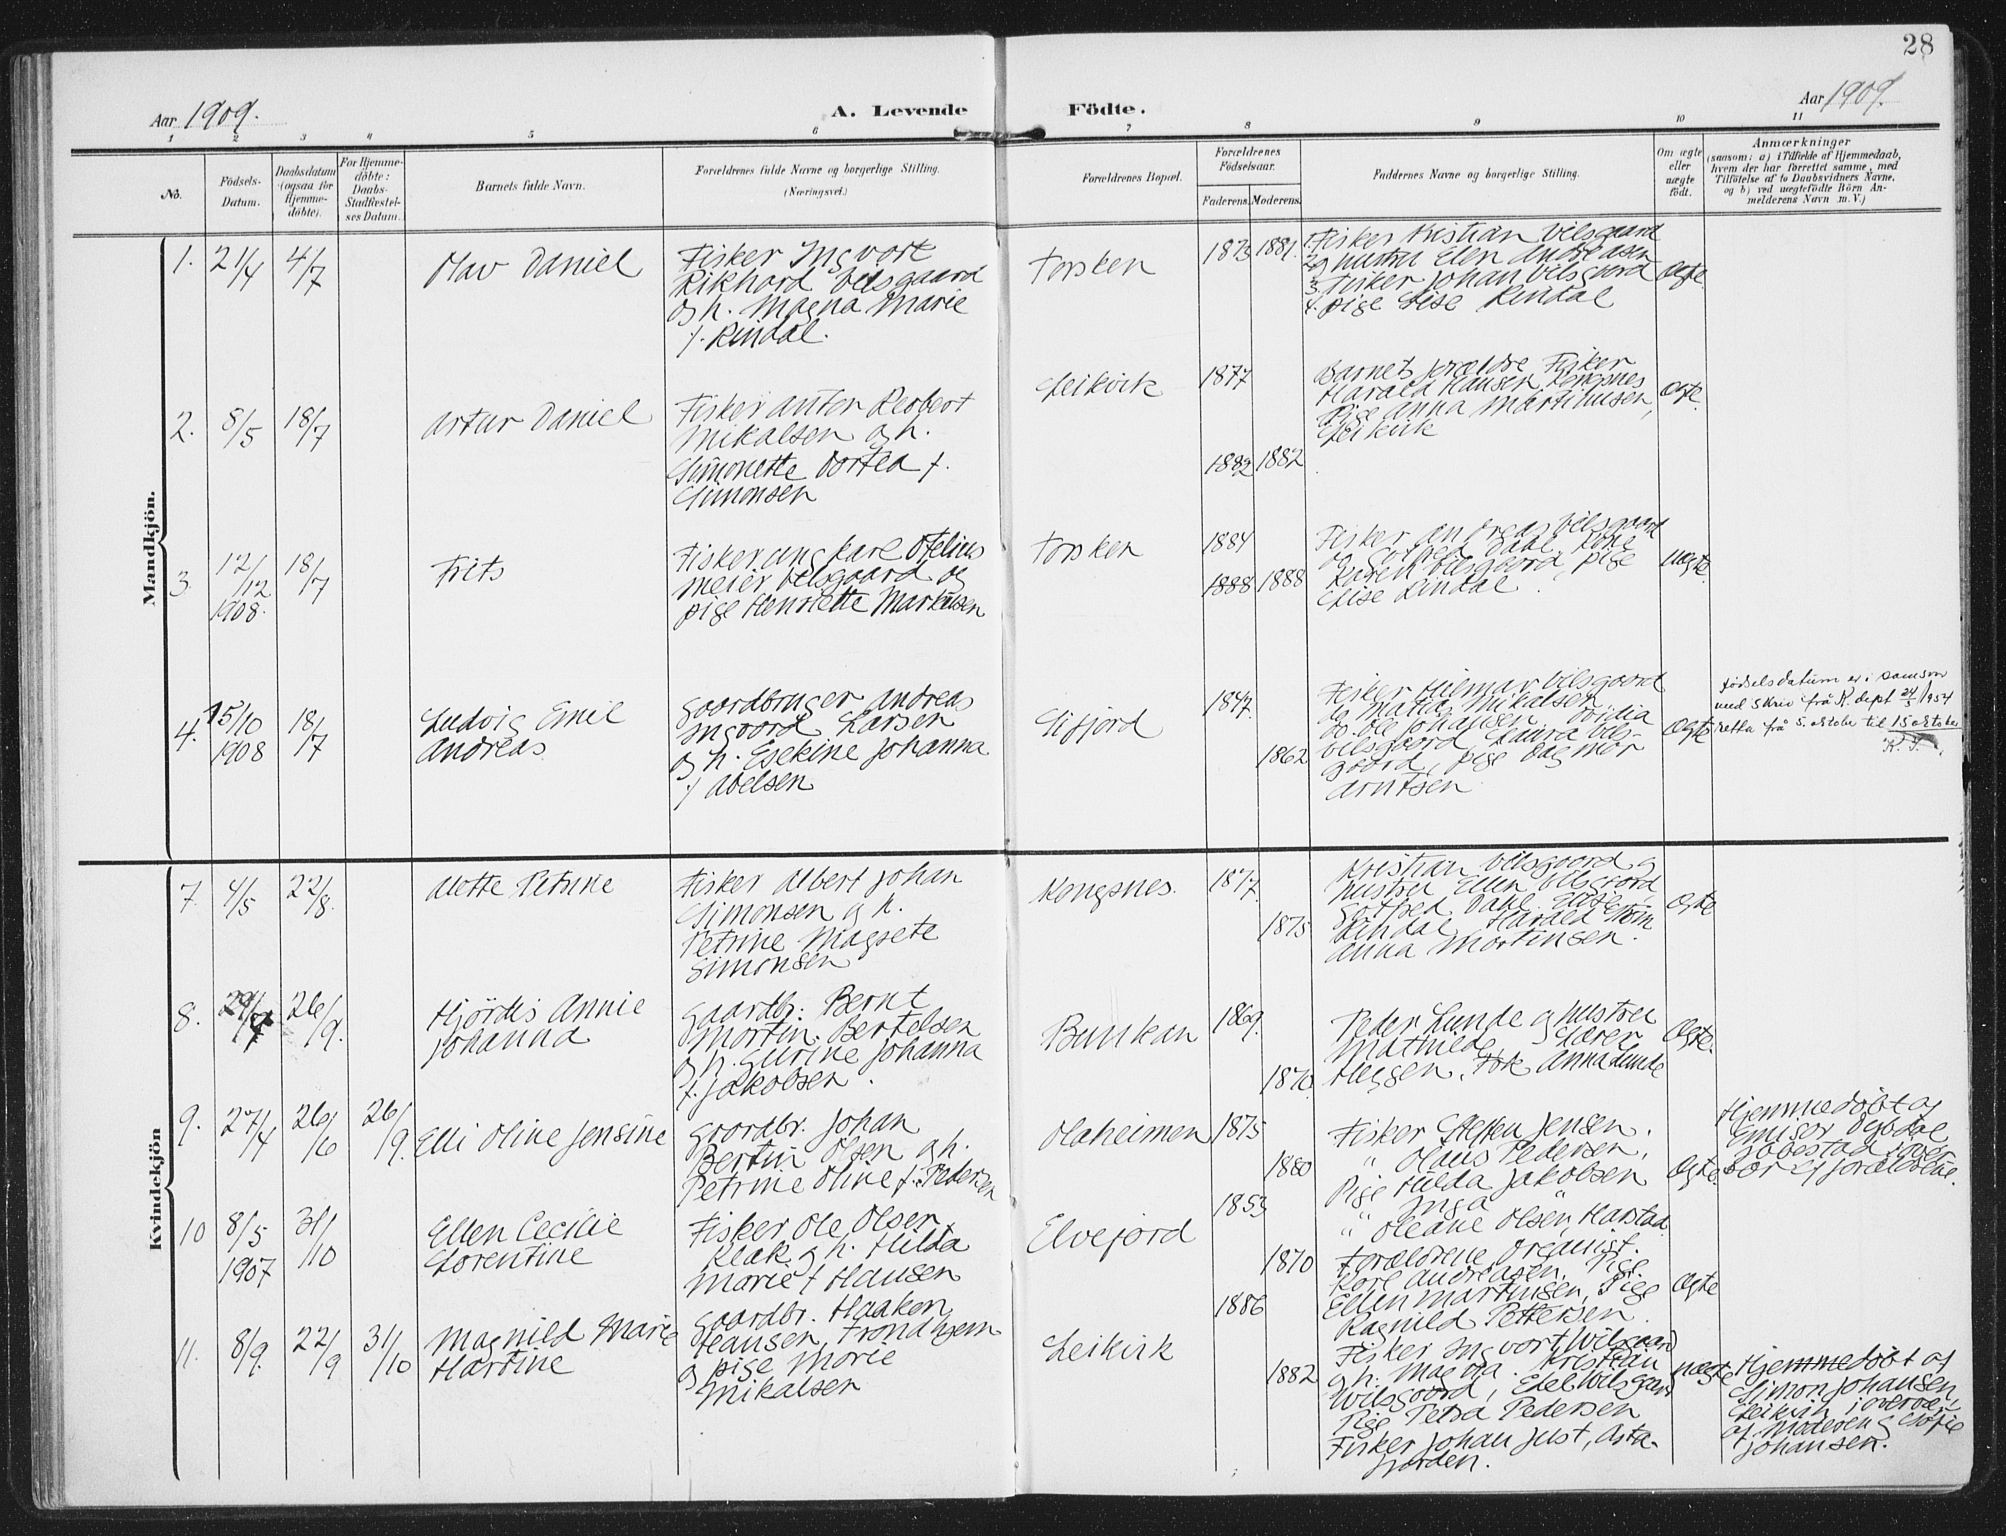 28
Aar 1909.
A. Levende Födte.
Aar 1909.
1 2 3 4 5 6 7 8 9 10 11
No.
Födsels-
Datum.
Daabsdatum
(ogsaa for
Hjemme-
döbte).
For Hjemme-
döbte:
Daabs-
Stadfæstel-
ses Datum.
Barnets fulde Navn.
Forældrenes fulde Navne og borgerlige Stilling.
(Næringsvei.)
Forældrenes Bopæl.
Forældrenes
Födselsaar.
Faderens. Moderens.
Faddernes Navne og borgerlige Stilling.
Om ægte
eller
uægte
födt.
Anmærkninger
(saasom: a) i Tilfælde af Hjemmedaab,
hvem der har forrettet samme, med
Tilföielse af to Daabsvidners Navne,
og b) ved uægtefödte Börn An-
melderens Navn m. V.)
Mandkjön.
1. 21/4 4/7
Olav Daniel
Fisker Ingvart
Rikhard Vilsgaard
og h. Magna Marie
f. Rindal.
Torsken
1873 1881.
1. Fisker Kristian Vilsgaard
2. og hustru Elen Andreasen
3. Fisker Johan Vilsgaard
4. Pige Elise Rindal
Ægte.
2. 8/5 18/7
Artur Daniel
Fisker Anton Robert
Mikalsen og h.
Simonette Dortea f.
Simonsen
Leikvik
1877
1882 1882
Barnets forældre Fisker
Harald Hansen Kongsnes
Pige Anna Martinusen,
Leikvik
Ægte.
3. 12/12 1908. 18/7
Frits
Fisker ung karl Ofelius
Meier Vilsgaard og
pige Henriette Markusen
Torsken
1884
1888 1888
Fisker Andreas Vilsgaard
og Gotfred Dahl, Kone
Karen Vilsgaard, pige
Elise Rindal.
uægte.
4. 15/10 1908 18/7
Ludvig Emil
Andreas
Gaardbruger Andreas
Ingvard Larsen
og h. Esekine Johanna
f. Abelsen
Eifjord
1847.
1862
Fisker Hilmar Vilsgaard
og Matias Mikalsen,
do. Ole Johansen,
Vilsgaard, Laura Vils-
gaard, pige Dagmar
Arntsen
Ægte
Fødselsdatum er i samsvar
med skriv frå K. dept 24/5 1954
retta frå 5. oktober til 15 oktober
K. S.
Kvindekjön
7. 4/5 22/8.
Alette Petrine
Fisker Albert Johan
Simonsen og h.
Petrine Magrete
Simonsen
Kongsnes.
1877.
1875
Kristian Vilsgaard og
hustru Ellen Vilsgaard
Gotfred Dahl, Elise
Rindal, Harald
Anna Martinsen.
Ægte
8. 26/9.
Hjördis Annie
Johanna
Gaardbr. Bernt
Mortin Bertelsen
og h. Gurine Johanna
f. Jakobsen.
Bunkan
1869.
1870
Peder Lunde og hustru
Mathilde, Lærer
Heggen, Frk Anna Lunde
Ægte.
9. 27/4 26/6 26/9.
Elli Oline Jensine
Gaardbr. Johan
Bertin Olsen og h.
Petrine Oline f. Pedersen
Olaheimen
1875
1880
Fisker Steffen Jensen.
" Olaus Pedersen,
Pige Hilda Jakobsen
" Inga "
" Oleane Olsen Harstad
Ægte.
Hjemmedøbt af
Emisør
10 8/5 1907 31/10
Ellen Cecilie
Lorentine
Fisker Ole Olsen
Klak og h. Hilda
Marie f. Hansen
Elvejord
1853
1870
Forældrene Organist.
Karl Andreasen. Pige.
Ellen Martinsen, Pige
Ragnild Pettersen.
Ægte
11. 8/9. 22/9 31/10
Magnild Marie
Hartine
Gaardbr. Haaken
Hansen, Trondhjem
og pige Marie
Mikalsen
Leikvik
1886
1882
Fisker Ingvart Wilsgaard
og h. Magna. Kristian
Wilsgaard, Edel Wilsgaard
Pige Petra Pedersen
Fisker Johan Just, Asta-
fjorden.
uægte
Hjemmedøbt af
Simon Johansen
Leikvik i overvær
af Moderen og Sofie
Johansen.